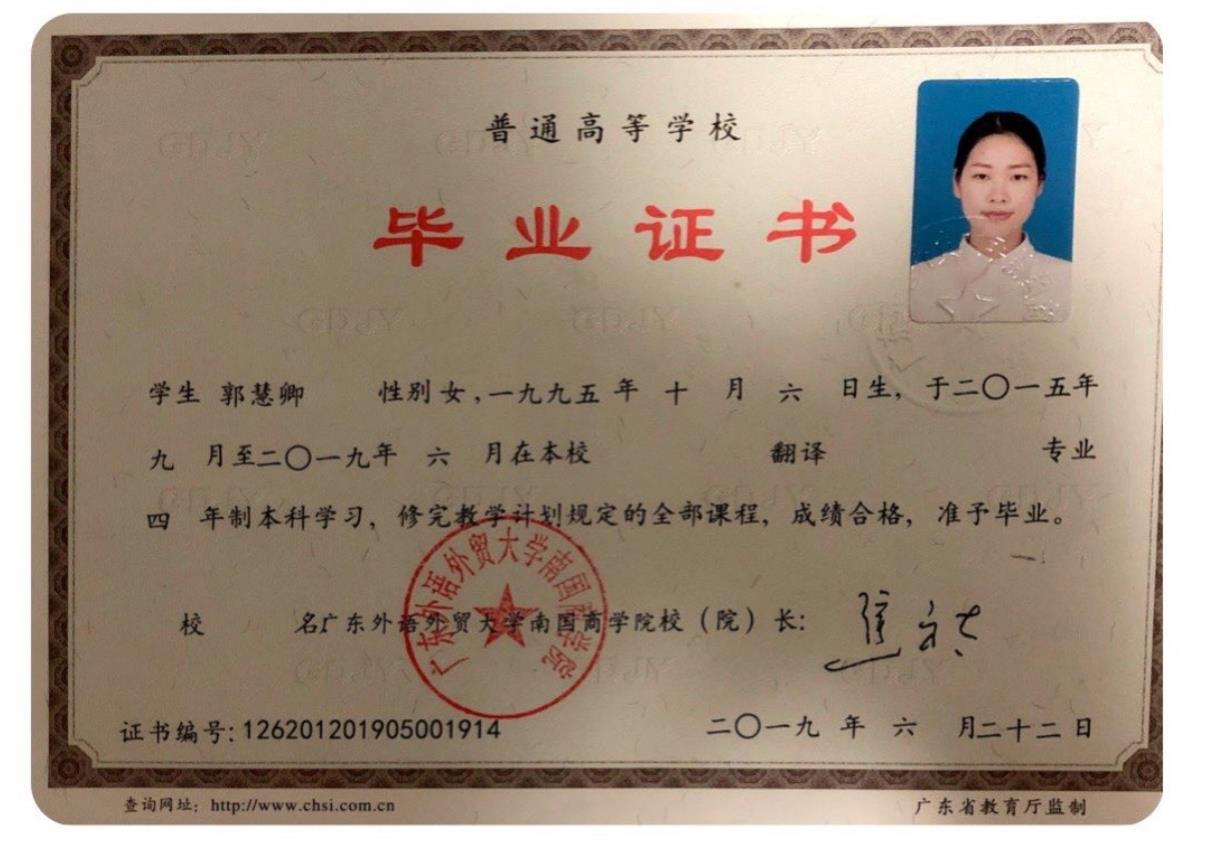 普通高等学校
毕业证书
学生 郭慧卿 性别 女，一九九五 年 十 月 六 日生，于二〇一五年
九 月至二〇一九年 六 月在本校 翻译 专业
四 年制本科学习，修完教学计划规定的全部课程，成绩合格，准予毕业。
广东外语外贸大学南国商学院
校 名:广东外语外贸大学南国商学院校（院）长:
证书编号:126201201905001914 二〇一九 年 六 月二十二日
查询网址：http://www.chsi.com.cn 广东省教育厅监制